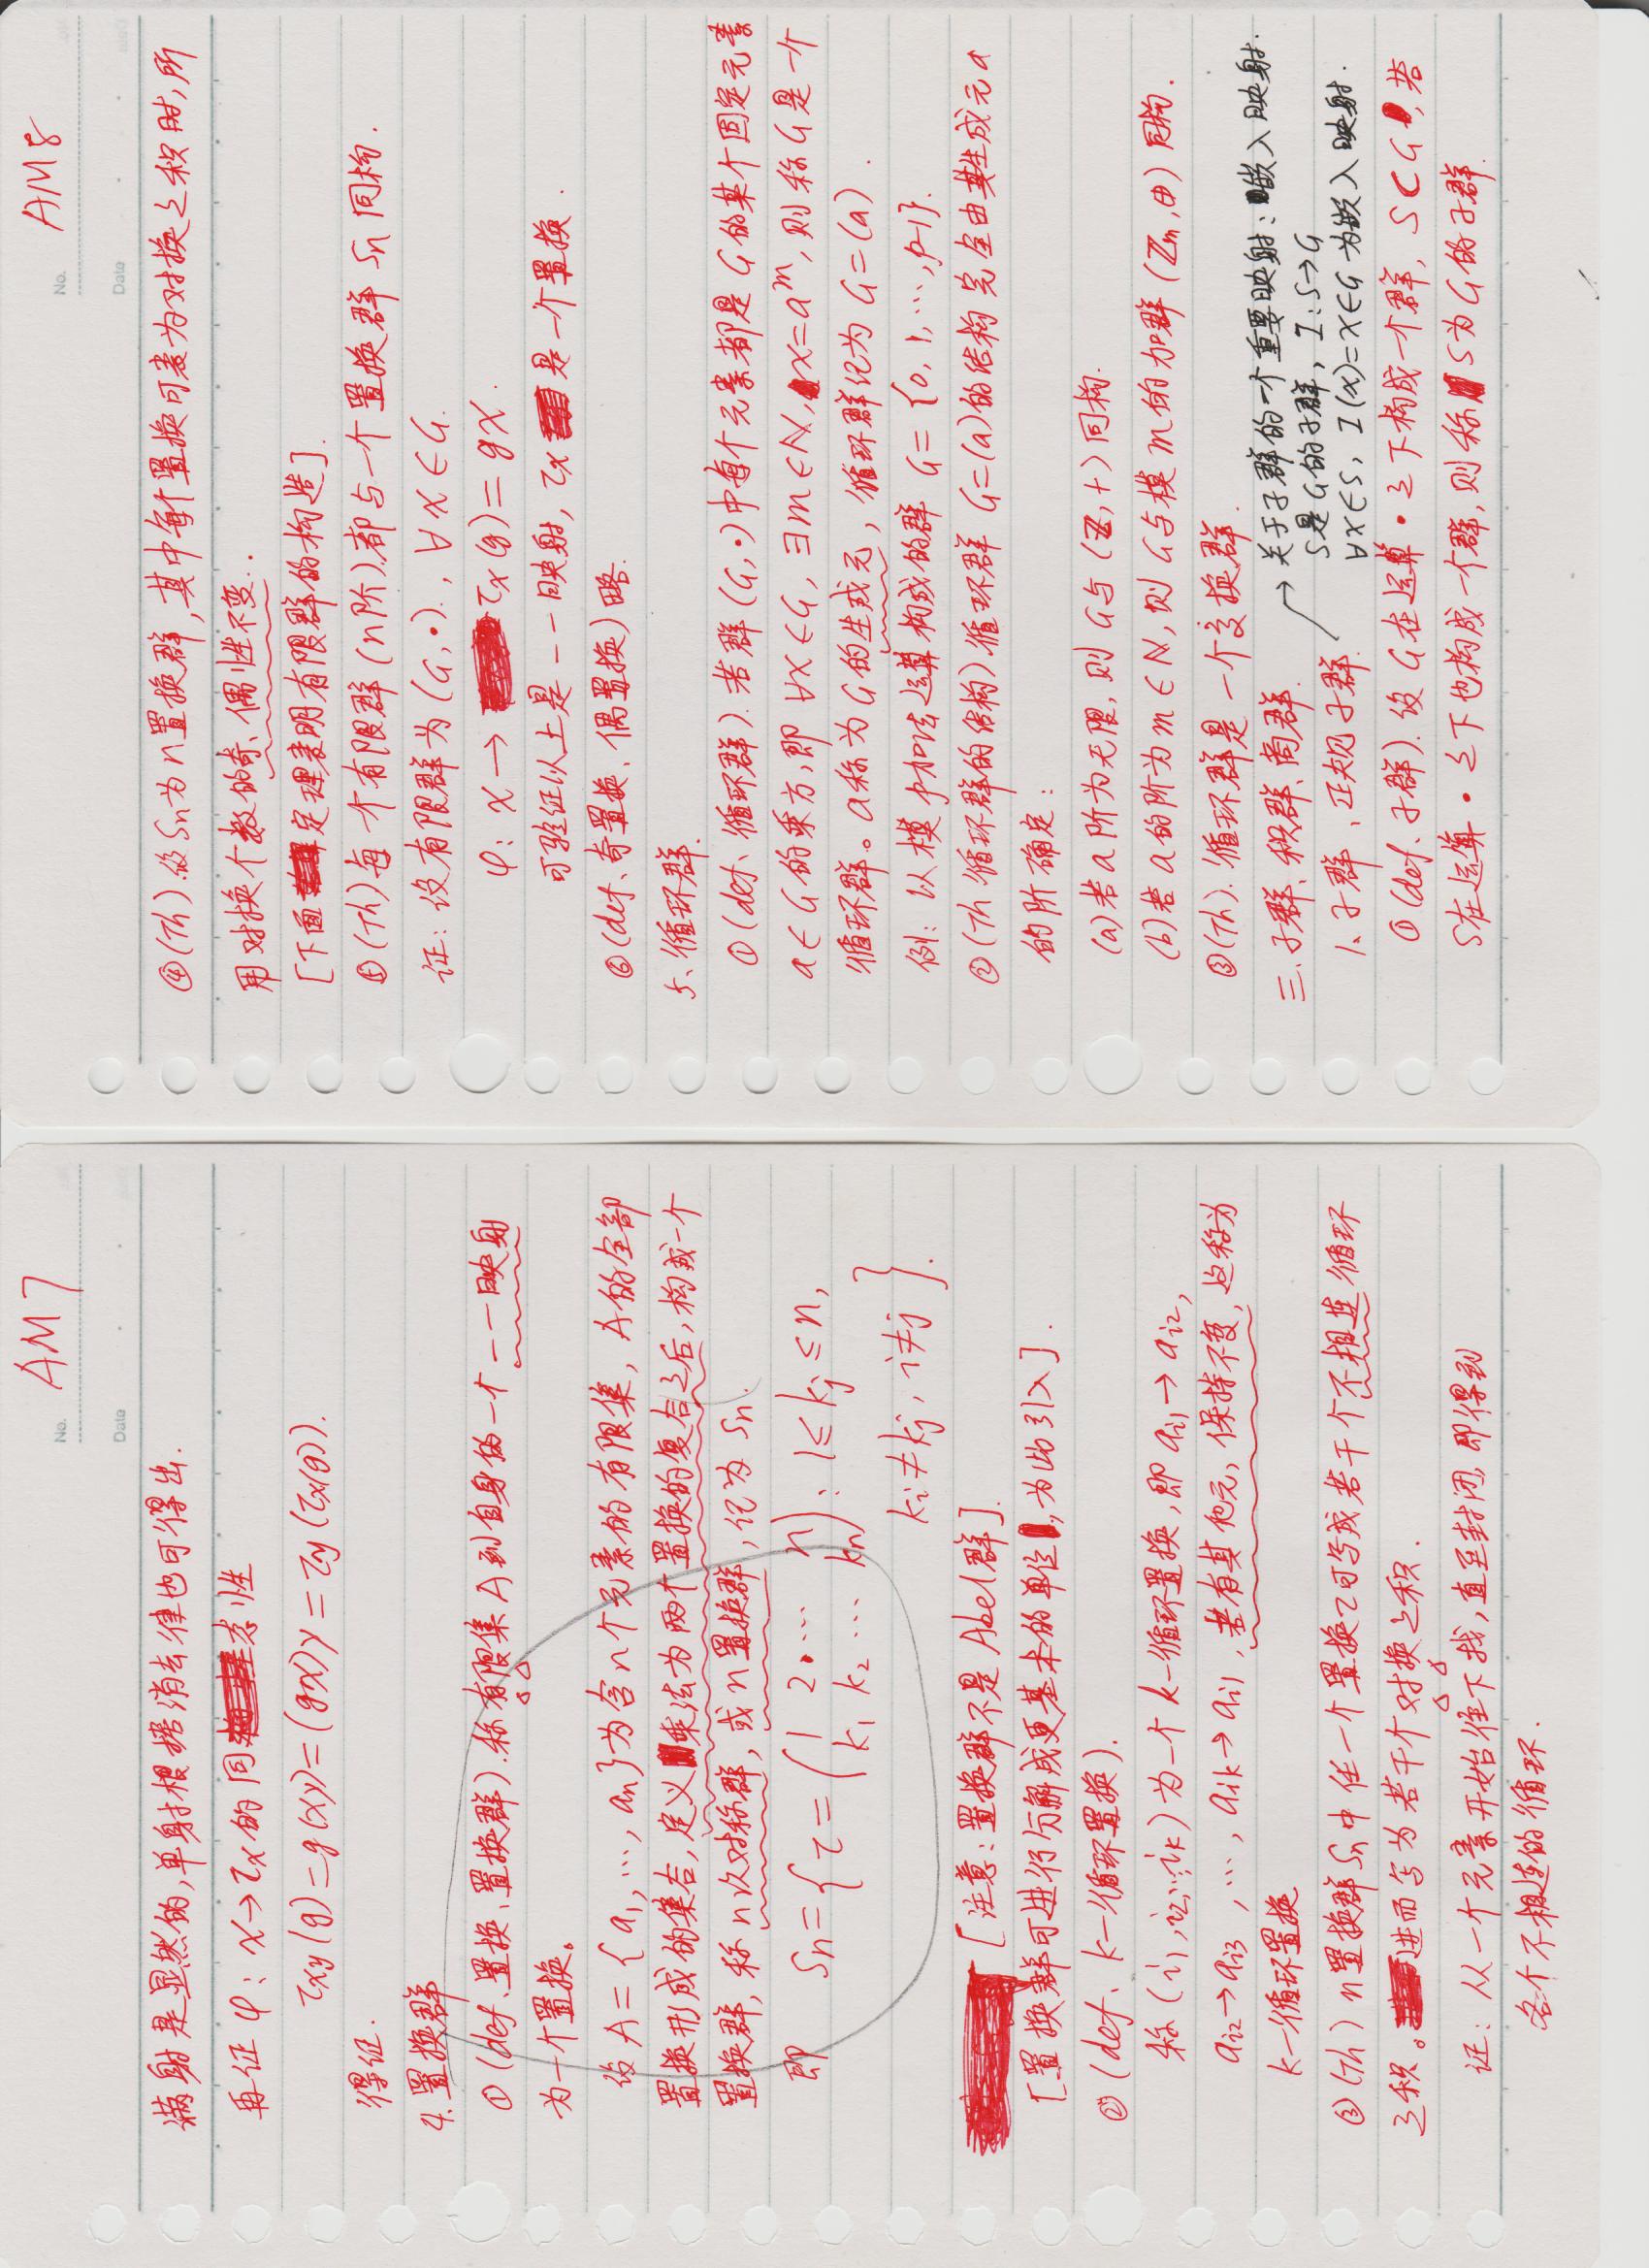 No. AM7
Date
满射是显然的,单射根据消去律也可得出.
再证 φ: x→τx 的同态性
τxy(g)=g(xy)=(gx)y=τy(τx(g)).
得证.
4.置换群
①(def、置换、置换群).称有限集A到自身的一个一一映射
为一个置换。
设A={a1,…,an}为含n个元素的有限集, A的全部
置换形成的集合,定义乘法为两个置换的复合之后,构成一个
置换群,称n次对称群,或n置换群,记为Sn.
即 Sn={τ=(1 2 … n
k1 k2 … kn): 1≤kj≤n,
ki≠kj, i≠j}.
[注意:置换群不是Abel群].
[置换群可进行分解成更基本的单位,为此引入].
②(def、k-循环置换).
称(i1,i2,…,ik)为一个k-循环置换,即ai1→ai2,
ai2→ai3,…,aik→ai1,若有其他元,保持不变,这称为
k-循环置换
③(Th) n置换群Sn中任一个置换τ可写成若干个不相连循环
之积。进而写为若干个对换之积.
证: 从一个元素开始往下找,直至封闭,即得到
各个不相连的循环.
No. AM8
Date
④(Th).设Sn为n置换群,其中每个置换可表为对换之积时,所
用对换个数的奇、偶性不变.
[下面定理表明有限群的构造].
⑤(Th)每一个有限群(n阶).都与一个置换群Sn同构.
证: 设有限群为(G,·)., ∀x∈G.
φ: x→τx(g)=gx.
可验证以上是一一映射, τx是一个置换.
⑥(def、奇置换、偶置换)略.
5、循环群.
①(def、循环群).若群(G,·)中每个元素都是G的某个固定元素
a∈G的乘方,即∀x∈G, ∃m∈N, x=a^m,则称G是一个
循环群。a称为G的生成元, 循环群记为G=(a).
例: 以模p加法运算构成的群 G={0,1,…,p-1}.
②(Th 循环群的结构)循环群 G=(a)的结构完全由其生成元a
的阶确定:
(a)若a阶为无限,则G与(Z,+)同构.
(b)若a的阶为m∈N,则G与模m的加群(Zm,⊕)同构.
③(Th).循环群是一个交换群.
三.子群、积群、商群.
1、子群、正规子群.
→关于子群的一个重要映射:嵌入映射.
S是G的子群, I:S→G
∀x∈S, I(x)=x∈G为嵌入映射.
①(def、子群).设G在运算·之下构成一个群, S⊂G,若
S在运算·之下也构成一个群,则称S为G的子群.